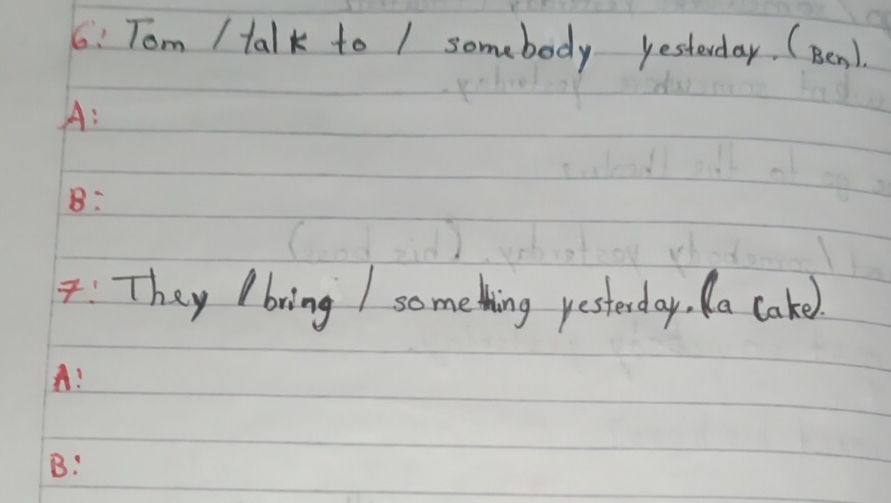 6: Tom / talk to / somebody yesterday. (Ben).
A:
B:
7: They / bring / something yesterday. (a cake).
A:
B: